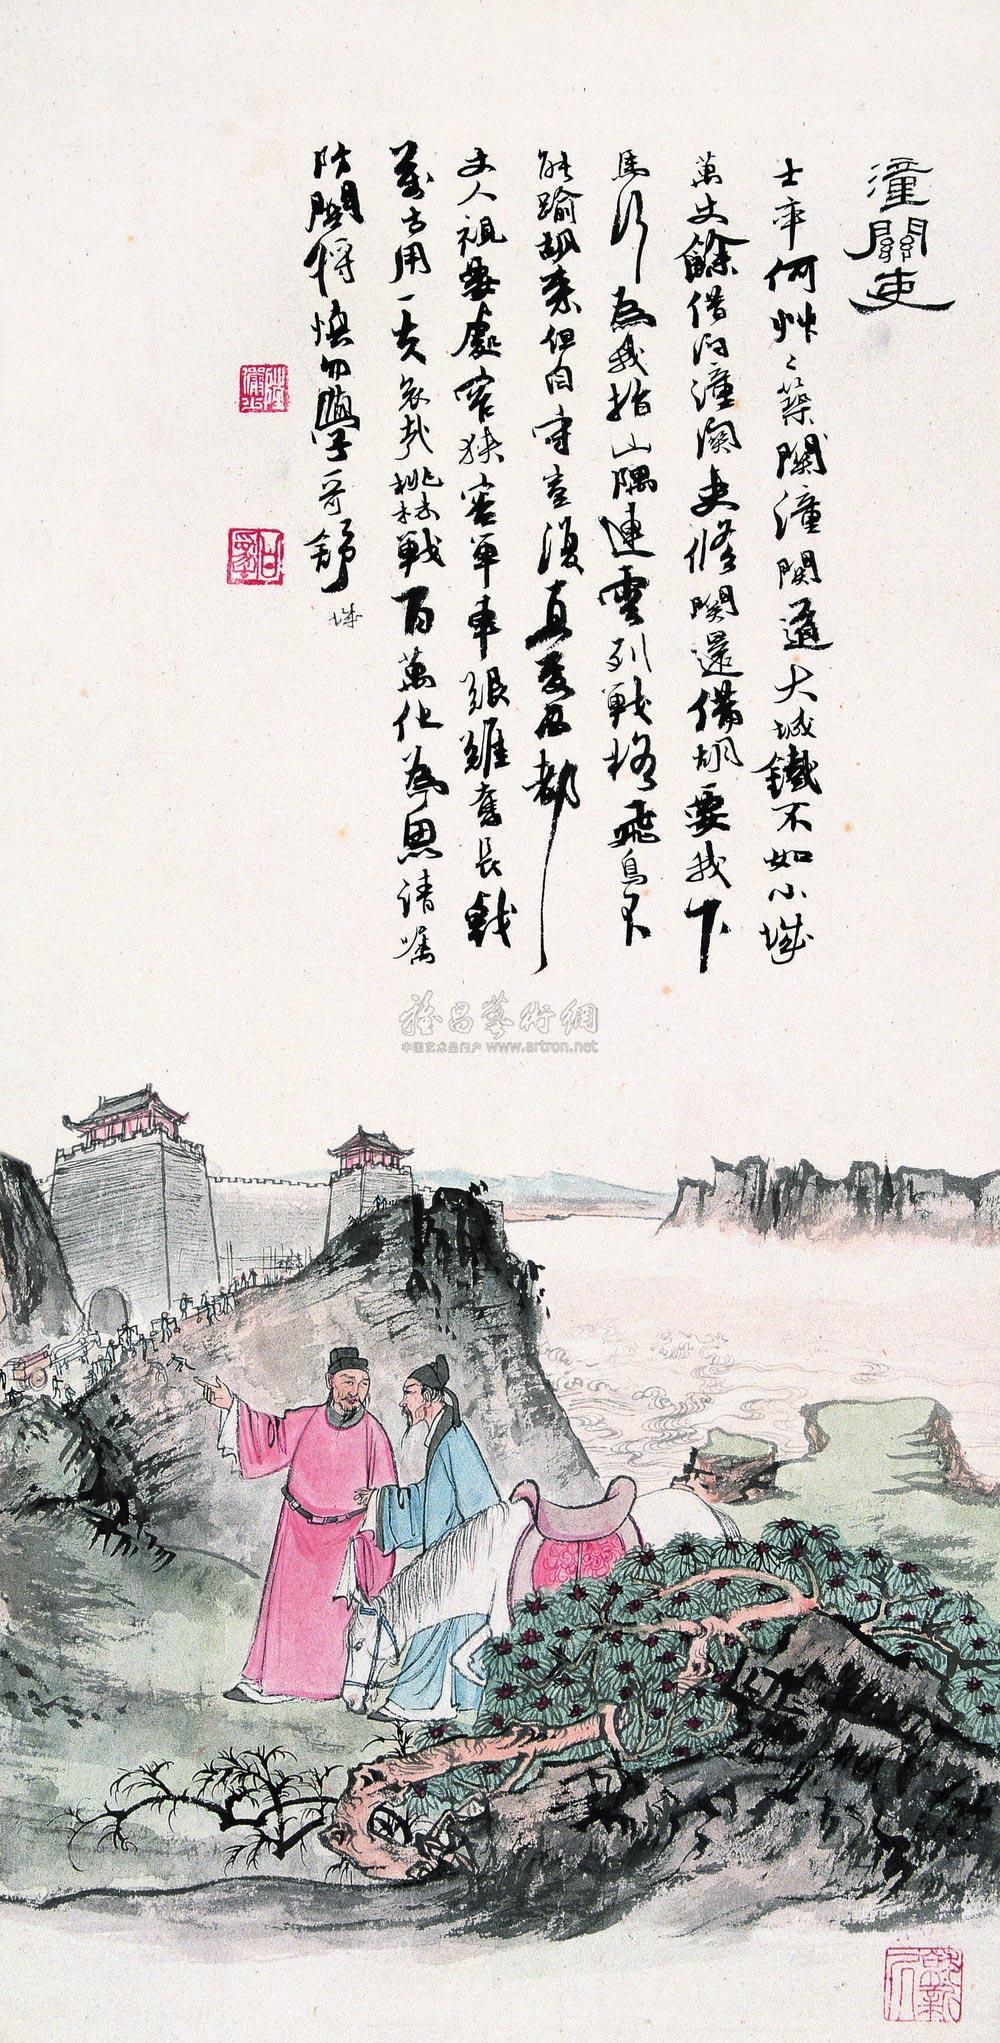 潼關吏
士卒何艸〻築關潼關道大城鐵不如小城
萬丈餘借问潼関吏修關還備胡要我下
馬行為我指山隅連雲列戰格飛鳥不
能踰胡來但自守豈復真憂西都
丈人視要處窄狹容單車艱難奮長戟
萬古用一夫哀哉桃林戰百萬化為魚請囑
防關將慎勿學哥舒
雅昌藝術網
中国艺术品门户 www.artron.net